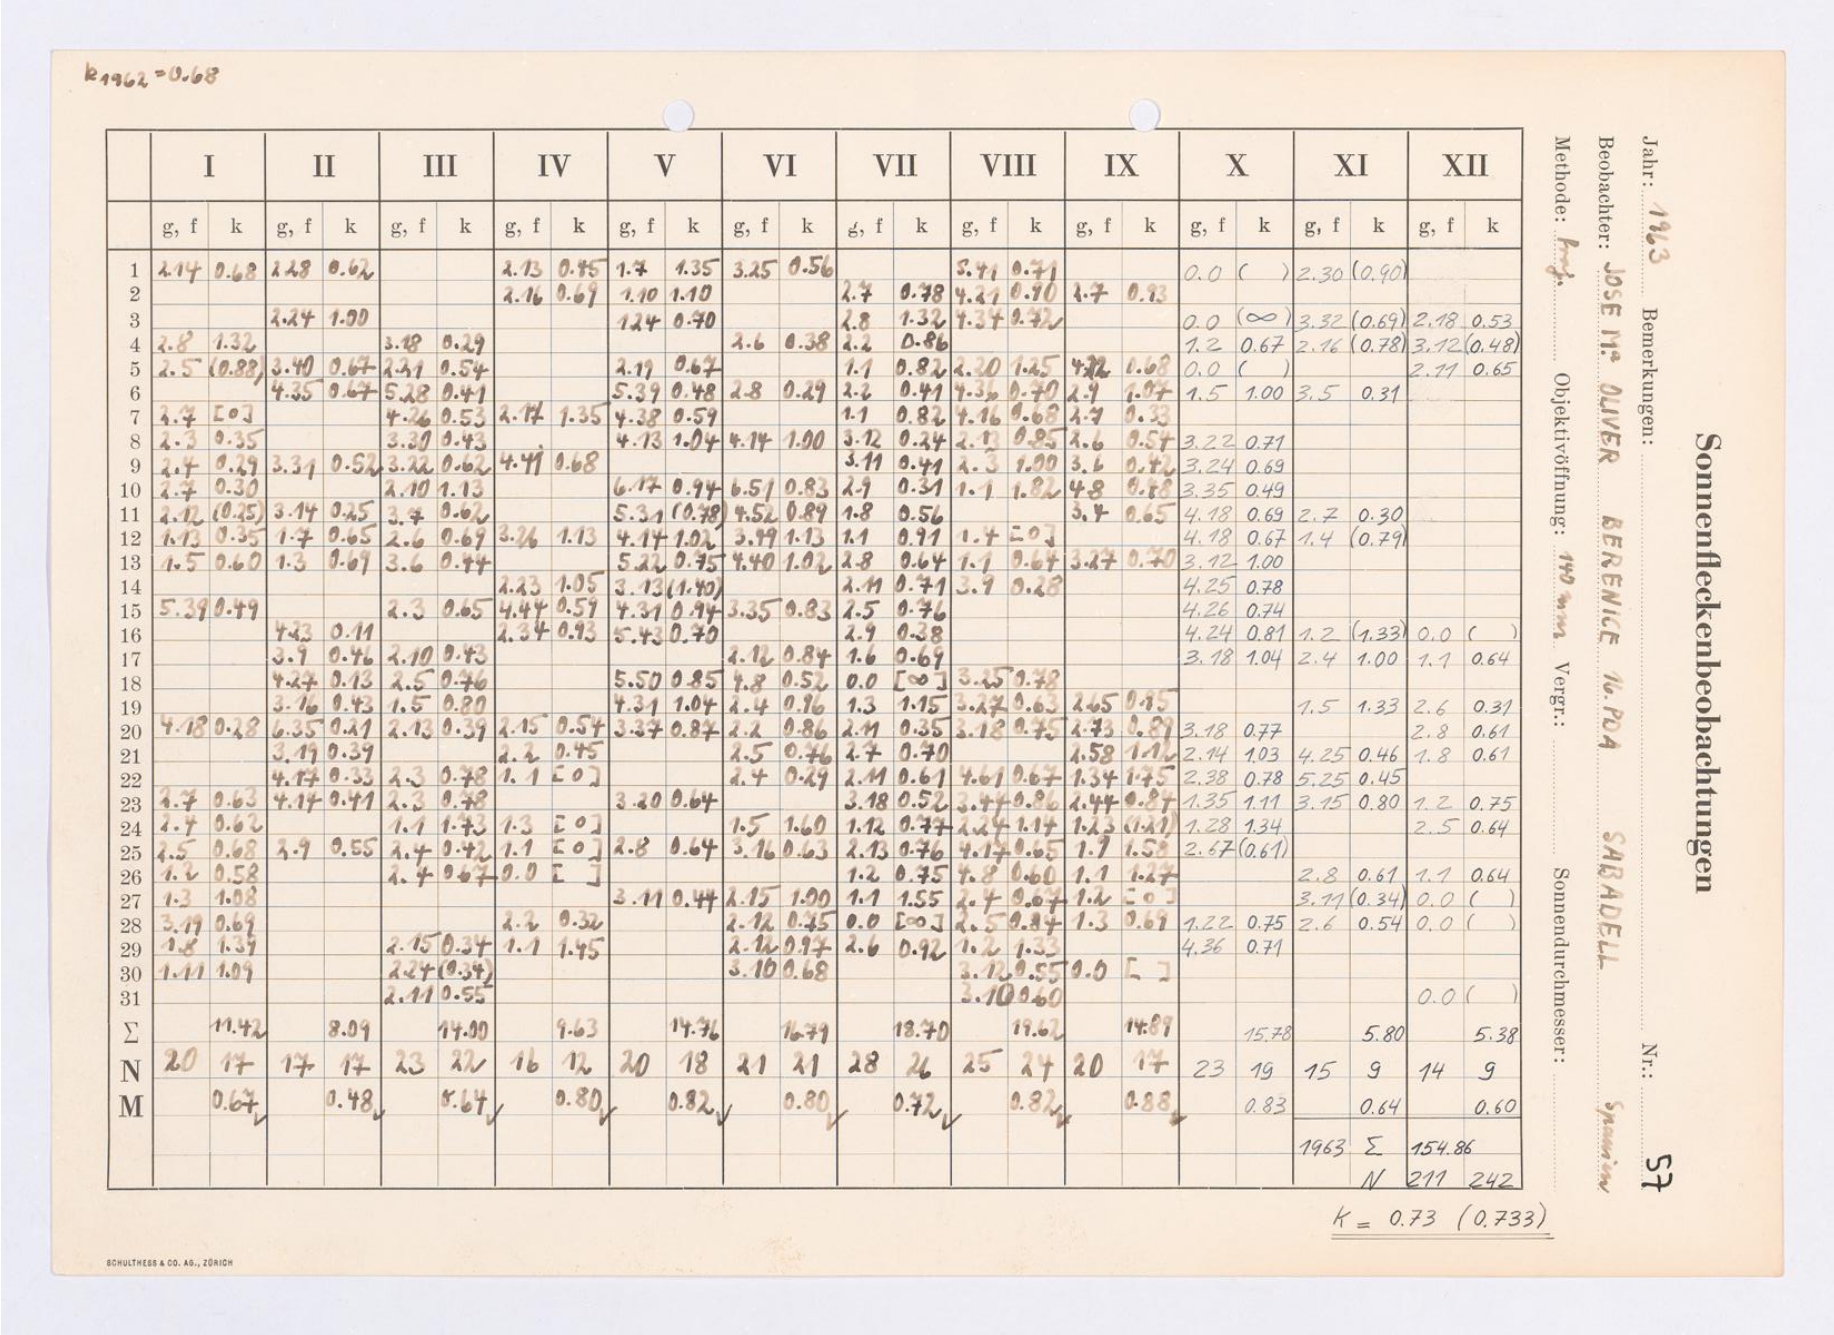 k1962 = 0.68
I II III IV V VI VII VIII IX X XI XII
g, f k g, f k g, f k g, f k g, f k g, f k g, f k g, f k g, f k g, f k g, f k g, f k
1 2.14 0.68 2.28 0.62 2.13 0.45 1.7 1.35 3.25 0.56 5.41 0.71 0.0 ( ) 2.30 (0.90)
2 2.16 0.69 1.10 1.10 2.7 0.78 4.21 0.90 2.7 0.93
3 2.24 1.00 1.24 0.70 2.8 1.32 4.34 0.72 0.0 (∞) 3.32 (0.69) 2.18 0.53
4 2.8 1.32 3.18 0.29 2.6 0.38 2.2 0.86 1.2 0.67 2.16 (0.78) 3.12 (0.48)
5 2.5 (0.88) 3.40 0.67 2.21 0.54 2.19 0.67 1.1 0.82 2.20 1.25 0.68 0.0 ( ) 2.11 0.65
6 4.35 0.67 5.28 0.41 5.39 0.48 2.8 0.29 2.2 0.41 4.36 0.70 2.9 1.07 1.5 1.00 3.5 0.31
7 2.7 [0] 4.26 0.53 2.17 1.35 4.38 0.59 1.1 0.82 4.16 0.68 2.7 0.33
8 2.3 0.35 3.30 0.43 4.13 1.04 4.14 1.00 3.12 0.24 2.13 0.85 2.6 0.54 3.22 0.71
9 2.4 0.29 3.31 0.52 3.22 0.62 4.41 0.68 3.11 0.41 2.3 1.00 3.6 0.42 3.24 0.69
10 2.7 0.30 2.10 1.13 6.17 0.94 6.51 0.83 2.9 0.31 1.1 1.82 4.8 0.48 3.35 0.49
11 2.12 (0.25) 3.14 0.25 3.7 0.62 5.31 (0.78) 4.52 0.89 1.8 0.56 3.4 0.65 4.18 0.69 2.7 0.30
12 1.13 0.35 1.7 0.65 2.6 0.69 3.26 1.13 4.14 1.02 3.49 1.13 1.1 0.91 1.4 [0] 4.18 0.67 1.4 (0.79)
13 1.5 0.60 1.3 0.69 3.6 0.44 5.22 0.75 4.40 1.02 2.8 0.64 1.1 0.64 3.27 0.70 3.12 1.00
14 2.23 1.05 3.13 (1.40) 2.11 0.71 3.9 0.28 4.25 0.78
15 5.39 0.49 2.3 0.65 4.44 0.59 4.31 0.94 3.35 0.83 2.5 0.76 4.26 0.74
16 4.23 0.11 2.34 0.93 5.43 0.70 2.9 0.38 4.24 0.81 1.2 (1.33) 0.0 ( )
17 3.9 0.46 2.10 0.43 2.12 0.84 1.6 0.69 3.18 1.04 2.4 1.00 1.1 0.64
18 4.27 0.13 2.5 0.76 5.50 0.85 4.8 0.52 0.0 [∞] 3.25 0.78
19 3.16 0.43 1.5 0.80 4.31 1.04 2.4 0.96 1.3 1.15 3.27 0.63 2.65 0.95 1.5 1.33 2.6 0.31
20 4.18 0.28 6.35 0.21 2.13 0.39 2.15 0.54 3.37 0.87 2.2 0.86 2.11 0.35 3.18 0.75 2.73 0.89 3.18 0.77 2.8 0.61
21 3.19 0.39 2.2 0.45 2.5 0.76 2.7 0.70 2.58 1.12 2.14 1.03 4.25 0.46 1.8 0.61
22 4.17 0.33 2.3 0.78 1.1 [0] 2.4 0.29 2.11 0.61 4.61 0.67 1.34 1.75 2.38 0.78 5.25 0.45
23 2.7 0.63 4.14 0.41 2.3 0.78 3.20 0.64 3.18 0.52 3.44 0.86 2.44 0.84 1.35 1.11 3.15 0.80 1.2 0.75
24 2.4 0.62 1.1 1.73 1.3 [0] 1.5 1.60 1.12 0.77 2.24 1.14 1.23 (1.21) 1.28 1.34 2.5 0.64
25 2.5 0.68 2.9 0.55 2.4 0.42 1.1 [0] 2.8 0.64 3.16 0.63 2.13 0.76 4.17 0.65 1.9 1.58 2.67 (0.61)
26 1.2 0.58 2.4 0.67 0.0 [ ] 1.2 0.75 4.8 0.60 1.1 1.27 2.8 0.61 1.1 0.64
27 1.3 1.08 3.11 0.44 2.15 1.00 1.1 1.55 2.4 0.67 1.2 [0] 3.11 (0.34) 0.0 ( )
28 3.19 0.69 2.2 0.32 2.12 0.75 0.0 [∞] 2.5 0.84 1.3 0.69 1.22 0.75 2.6 0.54 0.0 ( )
29 1.8 1.39 2.15 0.34 1.1 1.45 2.12 0.97 2.6 0.92 1.2 1.33 4.36 0.71
30 1.11 1.09 2.24 (0.34) 3.10 0.68 3.12 0.55 0.0 [ ]
31 2.11 0.55 3.10 0.60 0.0 ( )
Σ 11.42 8.09 14.00 9.63 14.76 16.79 18.70 19.62 14.89 15.78 5.80 5.38
N 20 17 17 17 23 22 16 12 20 18 21 21 28 26 25 24 20 17 23 19 15 9 14 9
M 0.67 0.48 0.64 0.80 0.82 0.80 0.72 0.82 0.88 0.83 0.64 0.60
1963 Σ 154.86
N 211 242
K = 0.73 (0.733)
SCHULTHESS & CO. AG., ZÜRICH
Sonnenfleckenbeobachtungen
Jahr: 1963 Bemerkungen: Nr.: 57
Beobachter: JOSE Mª OLIVER BERENICE 16. PDA SABADELL Spanien
Methode: Proj. Objektivöffnung: 140 mm Vergr.: Sonnendurchmesser: